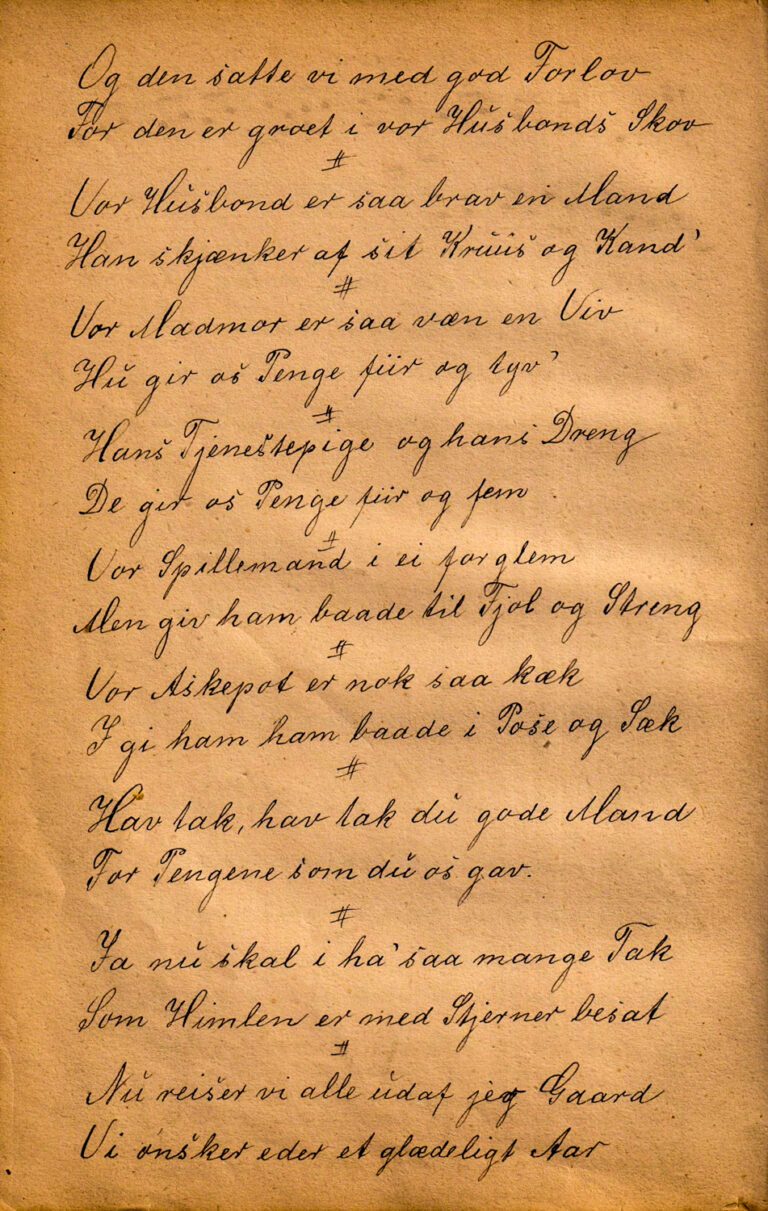 Og den satte vi med god Forlov
For den er groet i vor Husbonds Skov
#
Vor Husbond er saa brav en Mand
Han skjænker af sit Kruus og Kand'
#
Vor Madmor er saa væn en Viv
Hu gir os Penge fiir og tyv'
#
Hans Tjenestepige og hans Dreng
De gir os Penge fiir og fem
#
Vor Spillemand i ei forglem
Men giv ham baade til Fjol og Streng
#
Vor Askepot er nok saa kæk
I gi ham ham baade i Pose og Sæk
#
Hav tak, hav tak du gode Mand
For Pengene som du os gav.
#
Ja nu skal i ha' saa mange Tak
Som Himlen er med Stjerner besat
#
Nu reiser vi alle udaf jer Gaard
Vi ønsker eder et glædeligt Aar